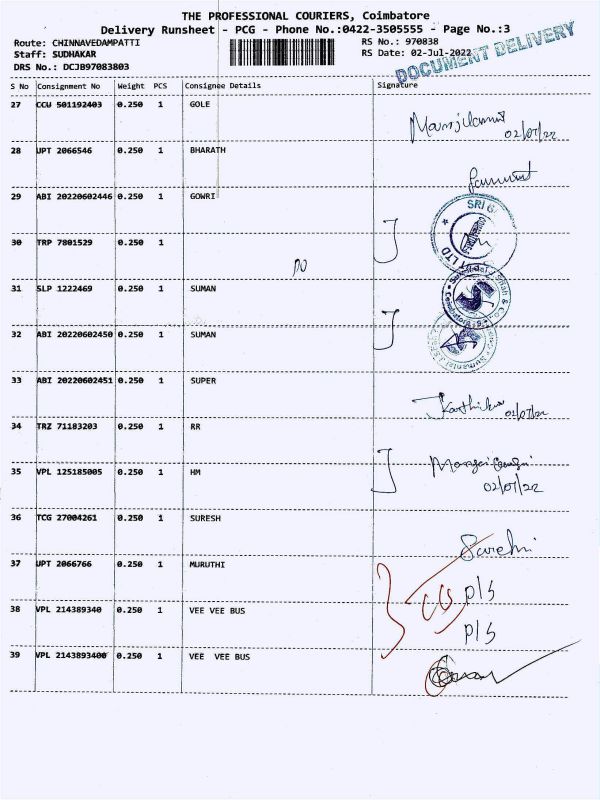 THE PROFESSIONAL COURIERS, Coimbatore
Delivery Runsheet - PCG - Phone No.:0422-3505555 - Page No.:3
Route: CHINNAVEDAMPATTI RS No.: 970838
Staff: SUDHAKAR RS Date: 02-Jul-2022
DRS No.: DCJB97083803
DOCUMENT DELIVERY
S No Consignment No Weight PCS Consignee Details Signature
27 CCU 501192403 0.250 1 GOLE
02/07/22
28 UPT 2066546 0.250 1 BHARATH
29 ABI 20220602446 0.250 1 GOWRI
SRI
LTD
30 TRP 7801529 0.250 1
31 SLP 1222469 0.250 1 SUMAN
32 ABI 20220602450 0.250 1 SUMAN
33 ABI 20220602451 0.250 1 SUPER
Karthik 02/07/22
34 TRZ 71183203 0.250 1 RR
35 VPL 125185005 0.250 1 HM
02/07/22
36 TCG 27004261 0.250 1 SURESH
Suresh
37 UPT 2066766 0.250 1 MURUTHI
P/S
38 VPL 214389340 0.250 1 VEE VEE BUS
P/S
39 VPL 2143893400 0.250 1 VEE VEE BUS